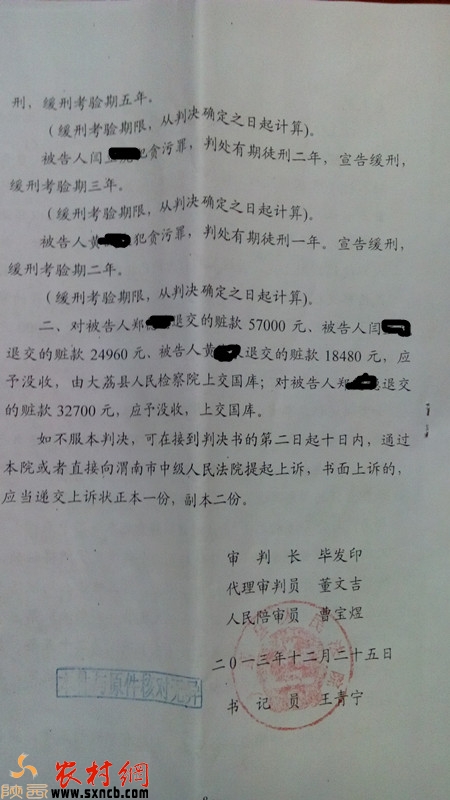 刑，缓刑考验期五年。
(缓刑考验期限，从判决确定之日起计算)。
被告人闫 犯贪污罪，判处有期徒刑二年，宣告缓刑，
缓刑考验期三年。
(缓刑考验期限，从判决确定之日起计算)。
被告人黄 犯贪污罪，判处有期徒刑一年。宣告缓刑，
缓刑考验期二年。
(缓刑考验期限，从判决确定之日起计算)。
二、对被告人郑 退交的赃款 57000 元、被告人闫
退交的赃款 24960 元、被告人黄 退交的赃款 18480 元，应
予没收，由大荔县人民检察院上交国库；对被告人郑 退交
的赃款 32700 元，应予没收，上交国库。
如不服本判决，可在接到判决书的第二日起十日内，通过
本院或者直接向渭南市中级人民法院提起上诉，书面上诉的，
应当递交上诉状正本一份，副本二份。
审 判 长 毕发印
代理审判员 董文吉
人民陪审员 曹宝煜
二0一三年十二月二十五日
本件与原件核对无异
书 记 员 王青宁
陕西 农村網
www.sxncb.com